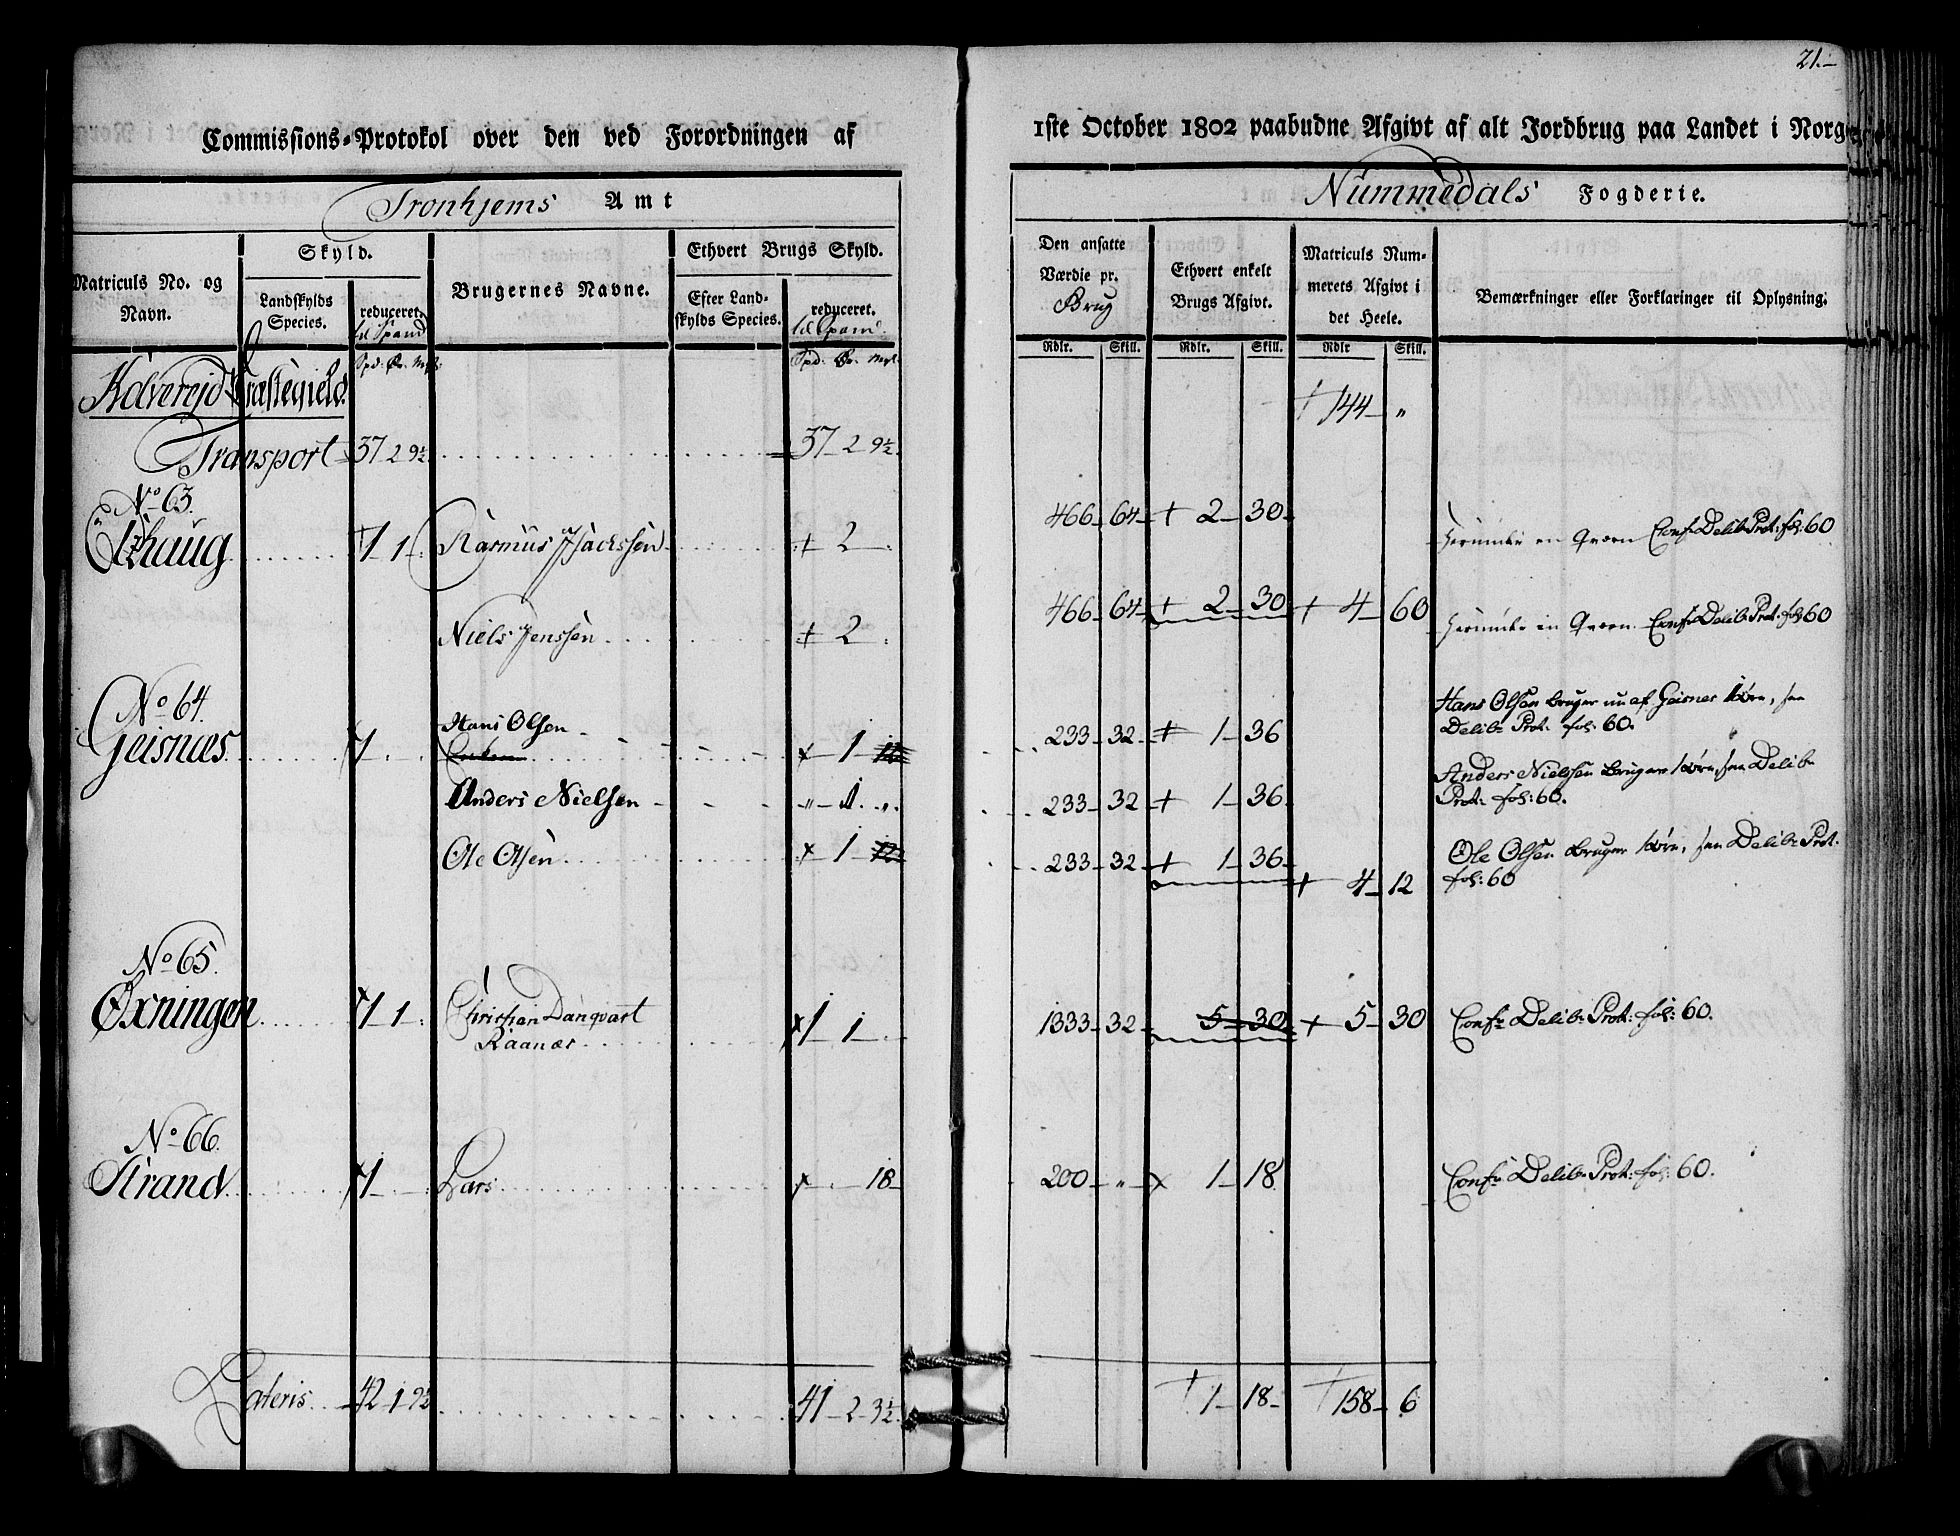 21.-
Commissions-Protokol over den ved Forordningen af 1ste October 1802 paabudne Afgivt af alt Jordbrug paa Landet i Norge
Tronhjems Amt
Nummedals Fogderie.
Matriculs No. og Navn.
Skyld.
Landskylds Species.
reduceret. til Spand
Brugernes Navne.
Ethvert Brugs Skyld.
Efter Landskylds Species.
reduceret. til Spand.
Den ansatte Værdie pr. Brug
Ethvert enkelt Brugs Afgivt.
Matriculs Nummerets Afgivt i det Heele.
Bemærkninger eller Forklaringer til Oplysning.
Spd: Ør. Mrk:
Spd: Ør. Mrk:
Rdlr. Skill. Rdlr. Skill. Rdlr Skill.
Kolvereid Præstegield. + 144 - "
Transport 37 2 9½ 37 - 2 9½
No 63.
haug + 1 1 - Rasmus Isachsen + 2 - 466 - 64 - + 2 - 30 - en Qvern Confr Delib: Prot: fol: 60
Niels Jenssen + 2 . 466 - 64 - + 2 - 30 + 4 - 60 Qvern Confr Delib: Prot: fol: 60
No 64.
Geisnæs 1 - Hans Olsen x 1 233 - 32 - + 1 - 36 Hans Olsen bruger nu af Geisnes 1 Øre, see
Delibr Prot: fol: 60.
Anders Nielsen " - 1 . ". 233 - 32 + 1 - 36 Anders Nielsen bruger 1 Øre, see Delibr
Prot: fol: 60.
Ole Olsen x 1 233 - 32 - + 1 - 36 - + 4 - 12 Ole Olsen bruger 1 Øre, see Delibr Prot:
fol: 60
No 65.
Øxningen x 1 - 1 - Christian Danqvart
Raanæs x 1 - 1 - 1333 - 32 - 5 - 30 + 5 - 30 Confr Delibr Prot: fol: 60.
No 66.
Strand x 1 - Lars x . 18 - 200 - " - x 1 - 18 Confr Delibr Prot: fol: 60.
Lateris 42 - 1 9½ 41 - 2 - 3½ + 1 - 18 - + 158 - 6